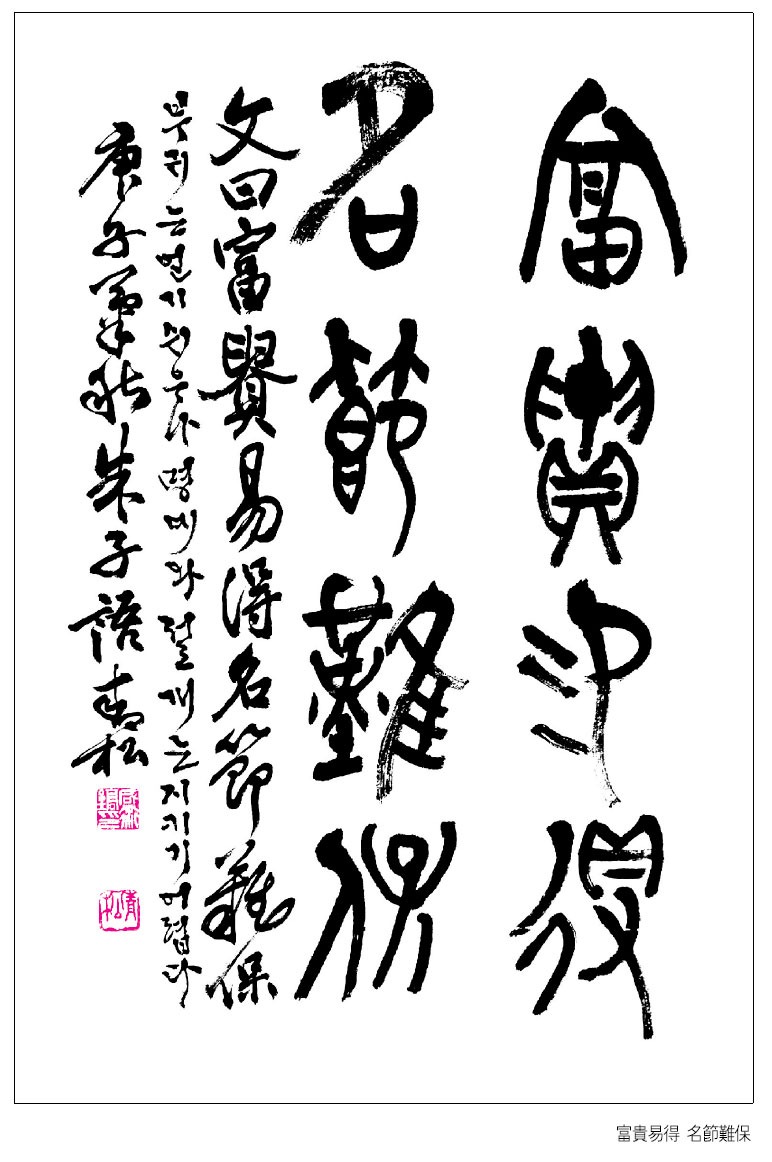 富貴易得
名節難保
文曰富貴易得名節難保
부귀는 얻기 쉬우나 명예와 절개는 지키기 어렵다
庚子肇秋朱子語靑松
靑松
富貴易得 名節難保